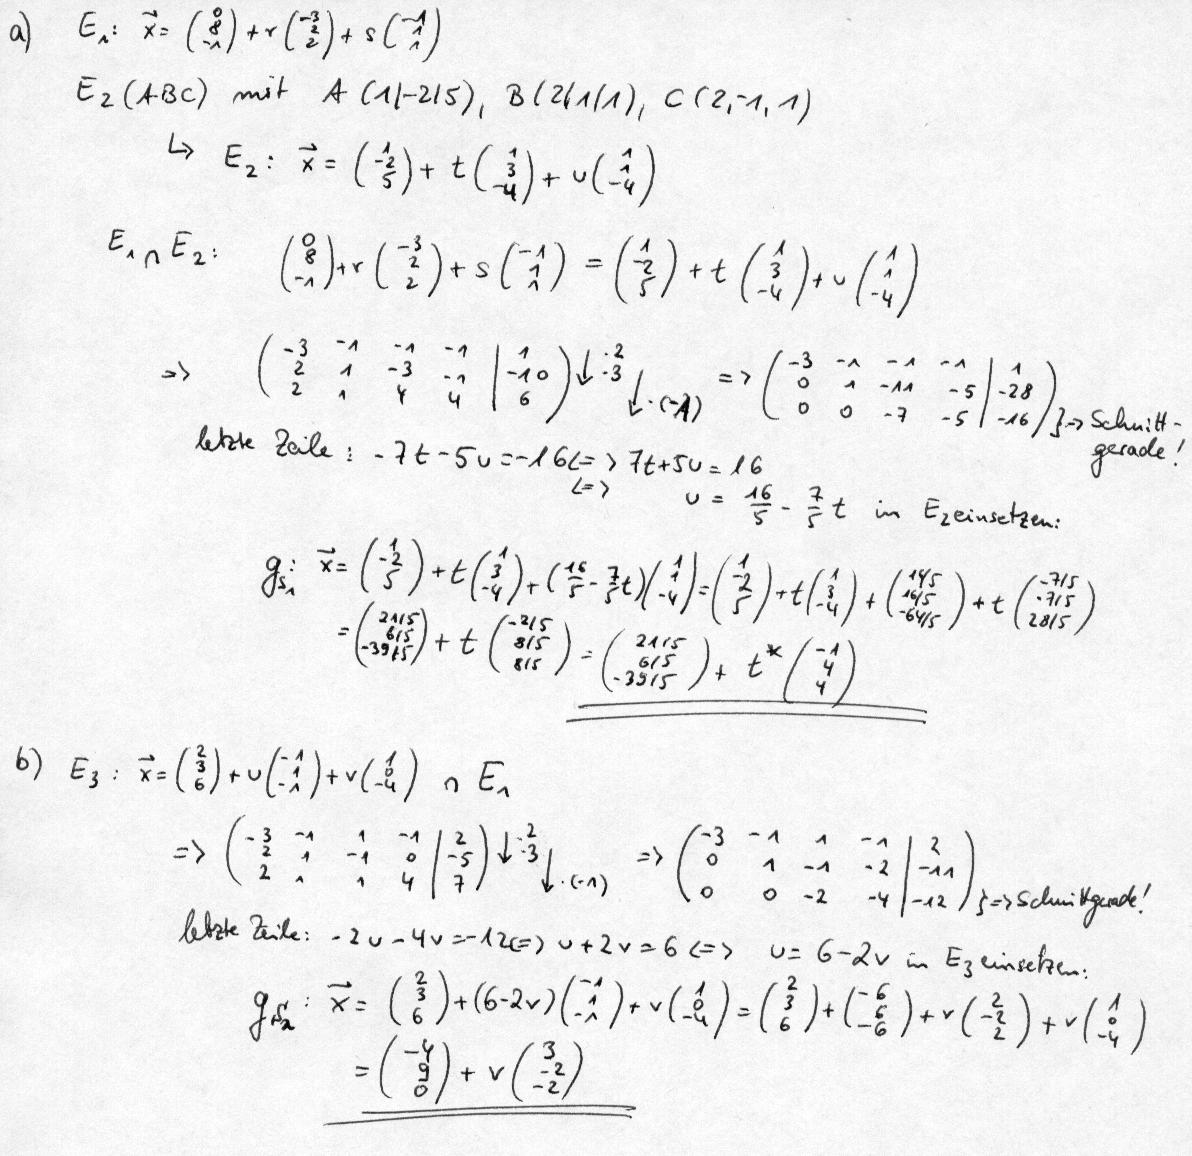 a) E₁: x⃗ = (0 8 -1) + r (-3 2 2) + s (-1 1 1)
E₂ (ABC) mit A (1|-2|5), B (2|1|1), C (2,-1,1)
↳ E₂: x⃗ = (1 -2 5) + t (1 3 -4) + u (1 1 -4)
E₁ ∩ E₂: (0 8 -1) + r (-3 2 2) + s (-1 1 1) = (1 -2 5) + t (1 3 -4) + u (1 1 -4)
=> (-3 -1 -1 -1 | 1 ; 2 1 -3 -1 | -10 ; 2 1 4 4 | 6) ↓ ·2 ·3 ↓ ·(-1) => (-3 -1 -1 -1 | 1 ; 0 1 -11 -5 | -28 ; 0 0 -7 -5 | -16) } => Schnitt-
gerade!
letzte Zeile: -7t-5u=-16 <=> 7t+5u=16
<=> u = 16/5 - 7/5 t in E₂ einsetzen:
g_S₁: x⃗ = (1 -2 5) + t (1 3 -4) + (16/5 - 7/5 t) (1 1 -4) = (1 -2 5) + t (1 3 -4) + (16/5 16/5 -64/5) + t (-7/5 -7/5 28/5)
= (21/5 6/5 -39/5) + t (-2/5 8/5 8/5) = (21/5 6/5 -39/5) + t* (-1 4 4)
b) E₃: x⃗ = (2 3 6) + u (-1 1 -1) + v (1 0 -4) ∩ E₁
=> (-3 -1 1 -1 | 2 ; 2 1 -1 0 | -5 ; 2 1 1 4 | 7) ↓ ·2 ·3 ↓ ·(-1) => (-3 -1 1 -1 | 2 ; 0 1 -1 -2 | -11 ; 0 0 -2 -4 | -12) } => Schnittgerade!
letzte Zeile: -2u-4v=-12 <=> u+2v=6 <=> u=6-2v in E₃ einsetzen:
g_S₂: x⃗ = (2 3 6) + (6-2v) (-1 1 -1) + v (1 0 -4) = (2 3 6) + (-6 6 -6) + v (2 -2 2) + v (1 0 -4)
= (-4 9 0) + v (3 -2 -2)